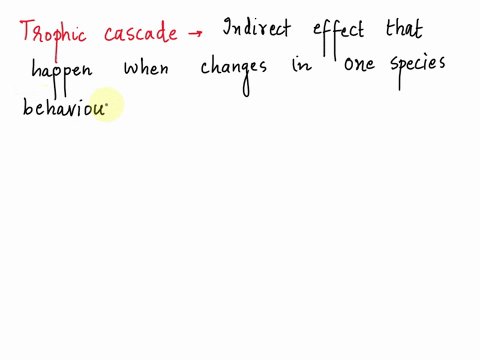 Trophic cascade → Indirect effect that
happen when changes in one species
behaviou